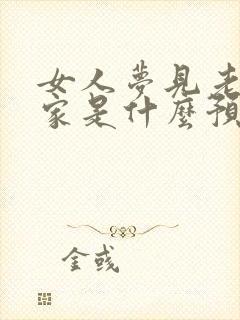 女人夢見老
家是什麼預
金彧